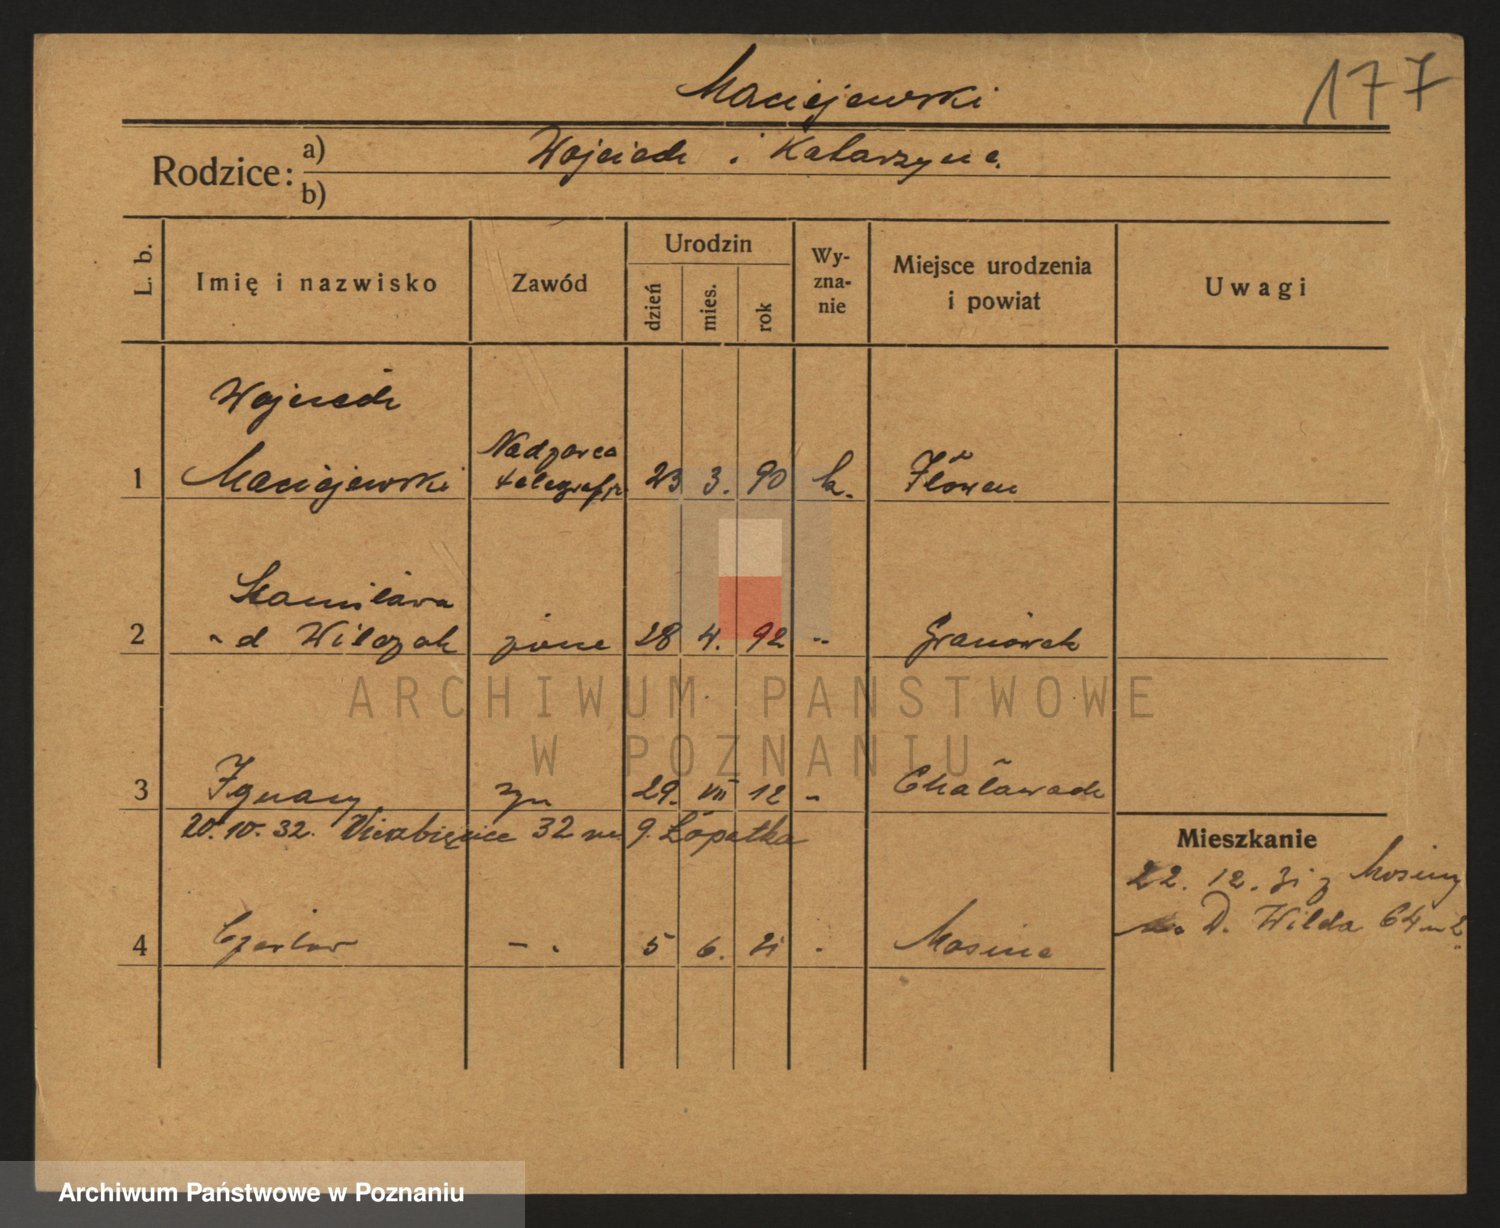 Maciejewski
177
Rodzice:
a) Wojciech i Katarzyna.
b)
L. b.
Imię i nazwisko
Zawód
Urodzin
dzień
mies.
rok
Wy-
zna-
nie
Miejsce urodzenia
i powiat
Uwagi
Wojciech
1 Maciejewski
Nadzorca
telegrafu
23 3. 90 k.
Stanisława
2 Wilczak żona 28 4. 92 -"- Granówek
ARCHIWUM PAŃSTWOWE
W POZNANIU
3 Ignacy syn 29. VII 12 -
20. 10. 32. 32 m 9. Łopatka
Mieszkanie
22. 12. 31 z Mosiny
D. Wilda 64 m 2.
4 Czesław - . 5 6. 21 . Mosina
Archiwum Państwowe w Poznaniu